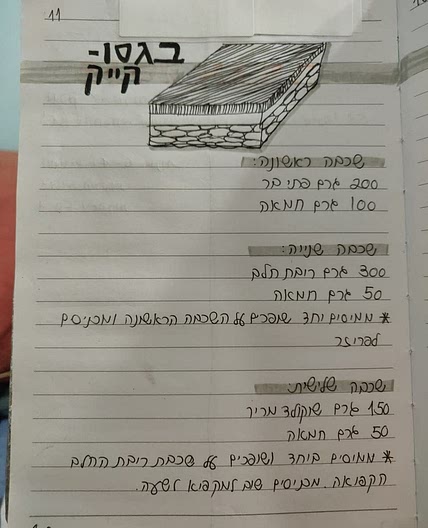 11
בגסו-
קייק
שכבה ראשונה:
200 גרם פתי בר
100 גרם חמאה
שכבה שנייה:
300 גרם ריבת חלב
50 גרם חמאה
* ממיסים יחד שופכים על השכבה הראשונה ומכניסים
לפריזר
שכבה שלישית:
150 גרם שוקולד מריר
50 גרם חמאה
* ממיסים ביחד ושופכים על שכבת ריבת החלב
הקפואה. מכניסים שוב למקפיא לשעה.